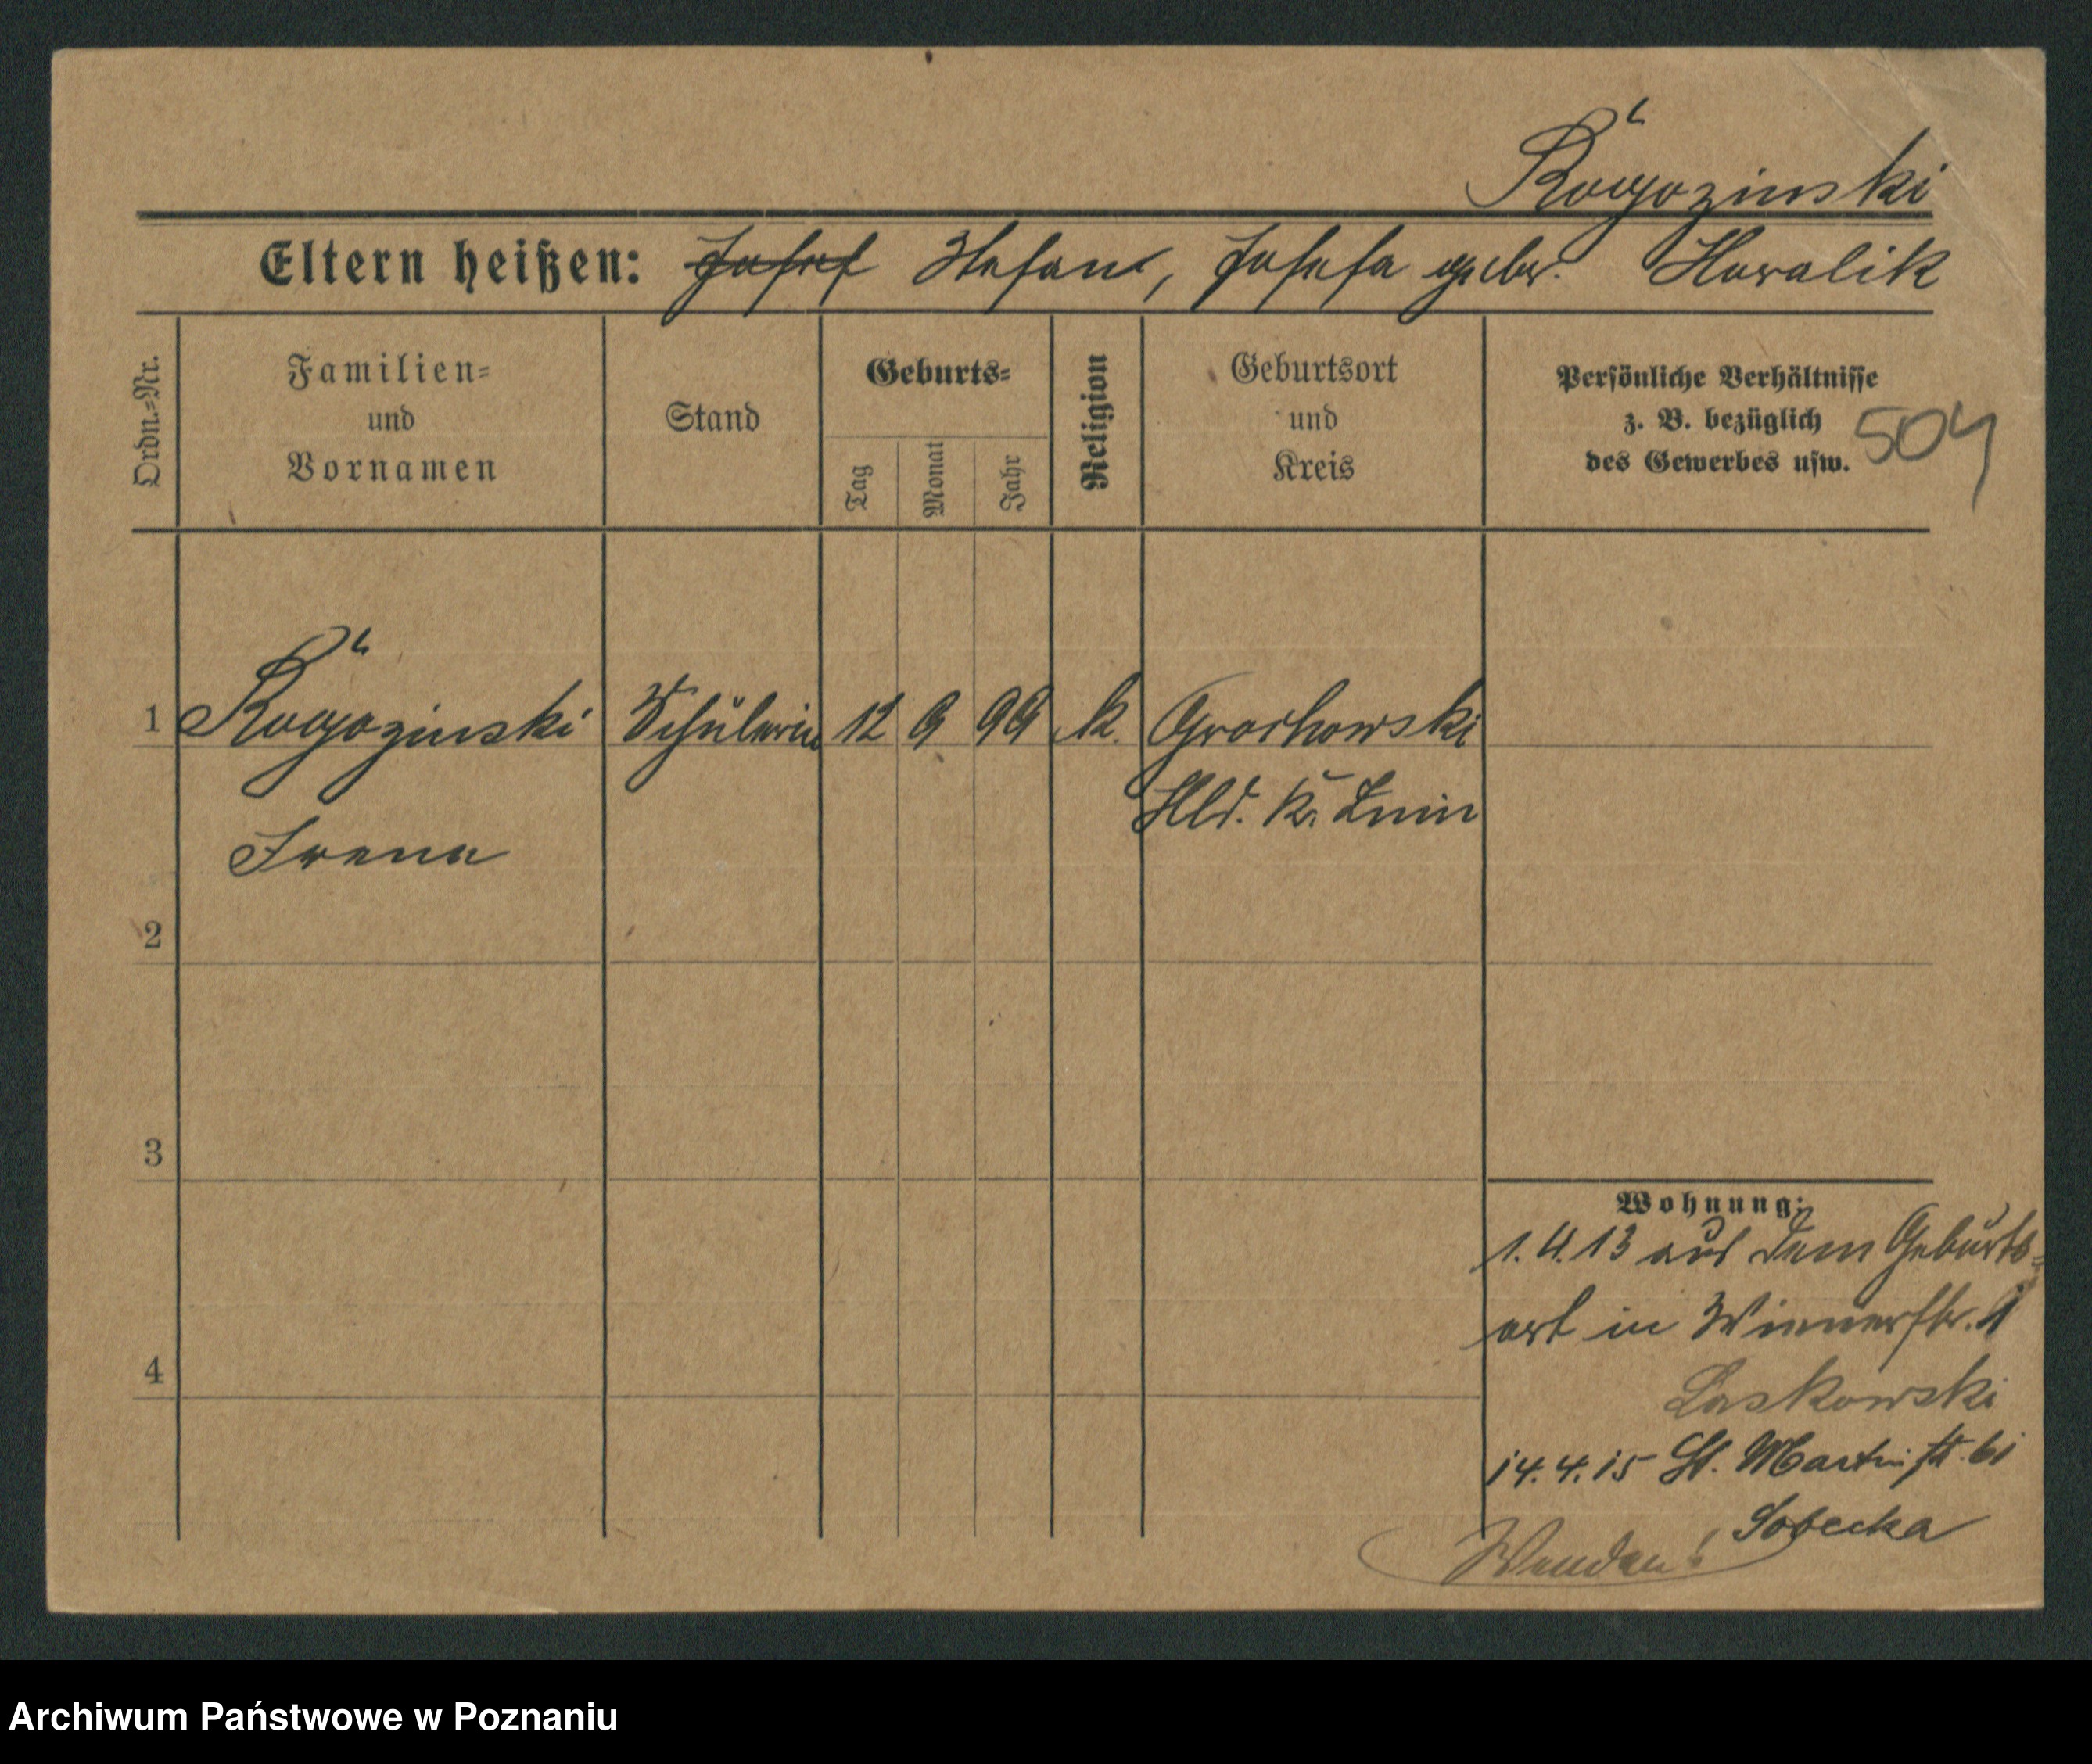 Rogozinski
Eltern heißen: Josef Stefan, Josefa geb. Kowalik
Ordn.=Nr.
Familien=
und
Vornamen
Stand
Geburts=
Tag
Monat
Jahr
Religion
Geburtsort
und
Kreis
Persönliche Verhältnisse
z. B. bezüglich
des Gewerbes usw.
504
1 Rogozinski Schülerin 12 9 99 k. Grochowski
Hld. Kr. Znin
Irena
2
3
4
Wohnung:
1.4.13 aus dem Geburts=
ort in Wienerstr.
Laskowski
14.4.15 St. Martinstr. 61
Sobecka
Archiwum Państwowe w Poznaniu